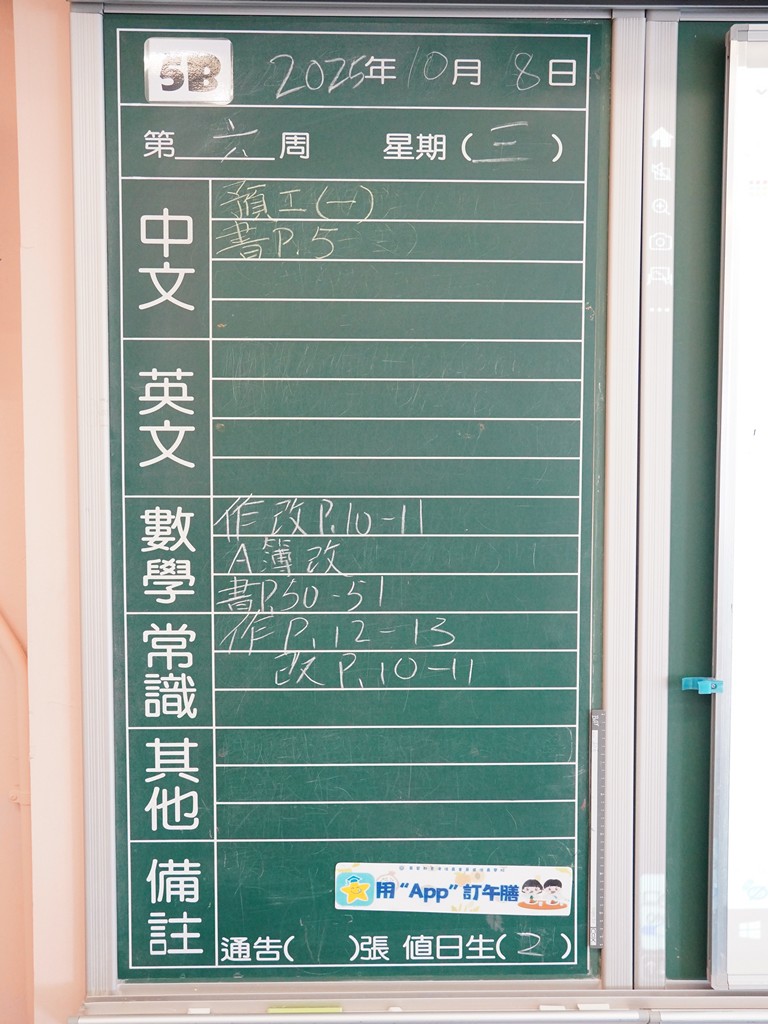 5B 2025年10月8日
第六周 星期(三)
中文
預工(一)
書P.5
英文
數學
作改P.10-11
A簿改
書P.50-51
常識
作P.12-13
改P.10-11
其他
備註
用“App”訂午膳
通告( )張 值日生(2)